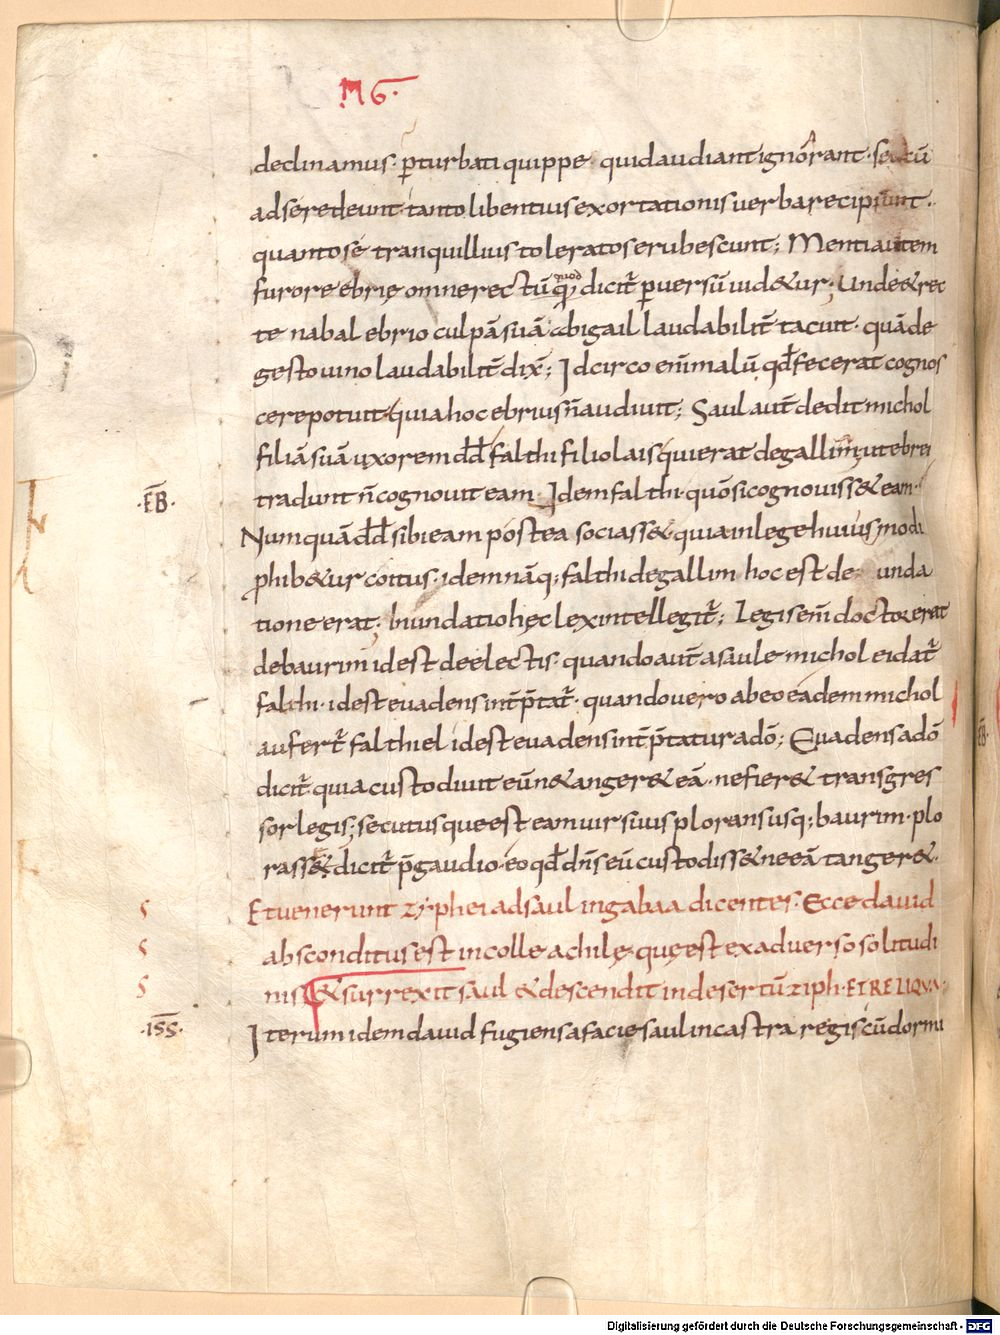 M G·
declinamus· p̄turbati quippe· quid audiant ignorant· sed cū
ad se redeunt· tanto libentius exortationis uerba recipiunt·
quanto se tranquillius toleratos erubescunt; Menti autem
furore ebrię omne rectū quod dicit̄ puersū uid&ur; Unde & rec
te nabal ebrio culpā suā abigail laudabilit̄ tacuit· quā de
gesto uino laudabilit̄ dix̄; Idcirco enī malū qđ fecerat cognos
cere potuit· quia hoc ebrius n̄ audiuit; Saul aut̄ dedit michol
filiā suā uxorem đđ falthi filio lais qui erat de gallim, ut ebrei
tradunt n̄ cognouit eam· Idem falthi· quō si cognouiss& eam·
·EB̄·
Numquā đđ sibi eam postea sociass&· quia in lege huius modi
phib&ur coitus· idem nāq; falthi de gallim hoc est de unda
tione erat; Inundatio hęc lex intellegit̄; Legis enī doctor erat
de baurim id est de electis· quando aut̄ a saule michol ei dat̄
falthi· id est euadens int̄p̄tat̄· quando uero ab eo eadem michol
aufert̄ falthiel id est euadens int̄p̄tatur a dō; Euadens a dō
dicit̄ quia custodiuit eū n& anger& eā· ne fier& transgres
sor legis; secutusque est eam uir suus plorans usq; baurim· plo
rass& dicit̄ p̄ gaudio· eo qđ dn̄s eū custodiss& ne eā tanger&·
Et uenerunt zyphei ad saul in gabaa dicentes· Ecce dauid
S
absconditus est in colle achilę· quę est exaduerso solitudi
S
nis & surrexit saul & descendit in desertū ziph· ET RELIQVA·
S
Iterum idem dauid fugiens a facie saul in castra regis cū dormi
·ISS̄·
EB̄·
Digitalisierung gefördert durch die Deutsche Forschungsgemeinschaft - DFG